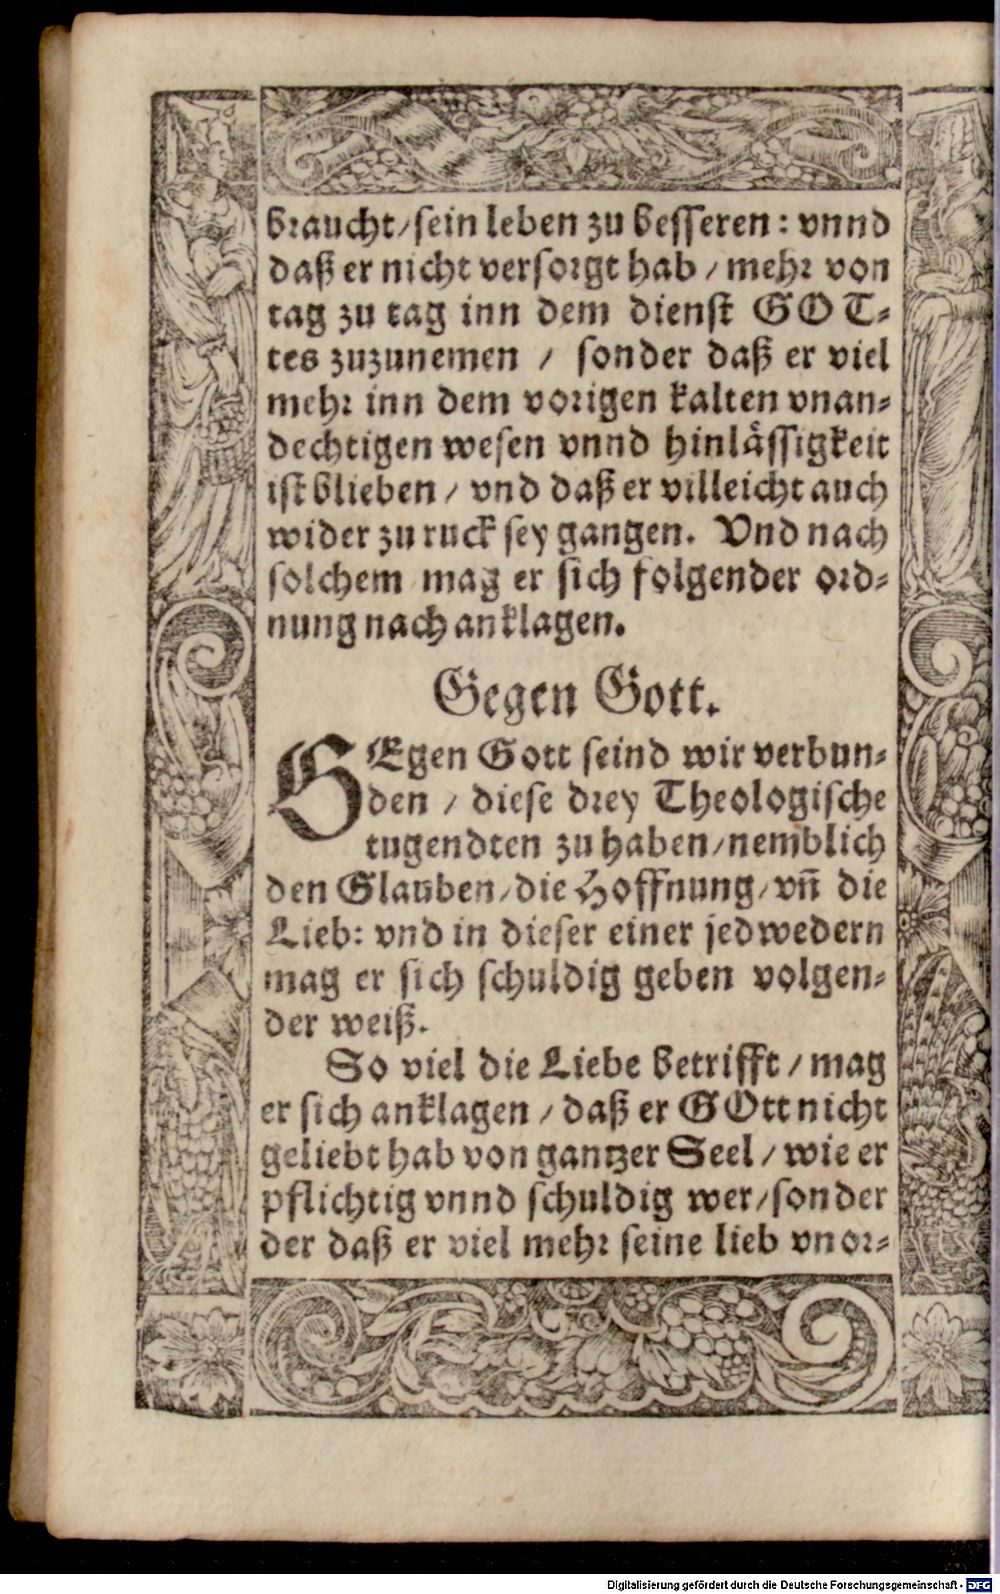 braucht/ sein leben zu besseren: vnnd
daß er nicht versorgt hab / mehr von
tag zu tag inn dem dienst GOT-
tes zuzunemen / sonder daß er viel
mehr inn dem vorigen kalten vnan-
dechtigen wesen vnnd hinlässigkeit
ist blieben / vnd daß er villeicht auch
wider zu ruck sey gangen. Vnd nach
solchem mag er sich folgender ord-
nung nach anklagen.
Gegen Gott.
GEgen Gott seind wir verbun-
den / diese drey Theologische
tugendten zu haben/ nemblich
den Glauben/ die Hoffnung/ vñ die
Lieb: vnd in dieser einer jedwedern
mag er sich schuldig geben volgen-
der weiß.
So viel die Liebe betrifft / mag
er sich anklagen / daß er GOtt nicht
geliebt hab von gantzer Seel / wie er
pflichtig vnnd schuldig wer/ sonder
der daß er viel mehr seine lieb vnor-
Digitalisierung gefördert durch die Deutsche Forschungsgemeinschaft - DFG